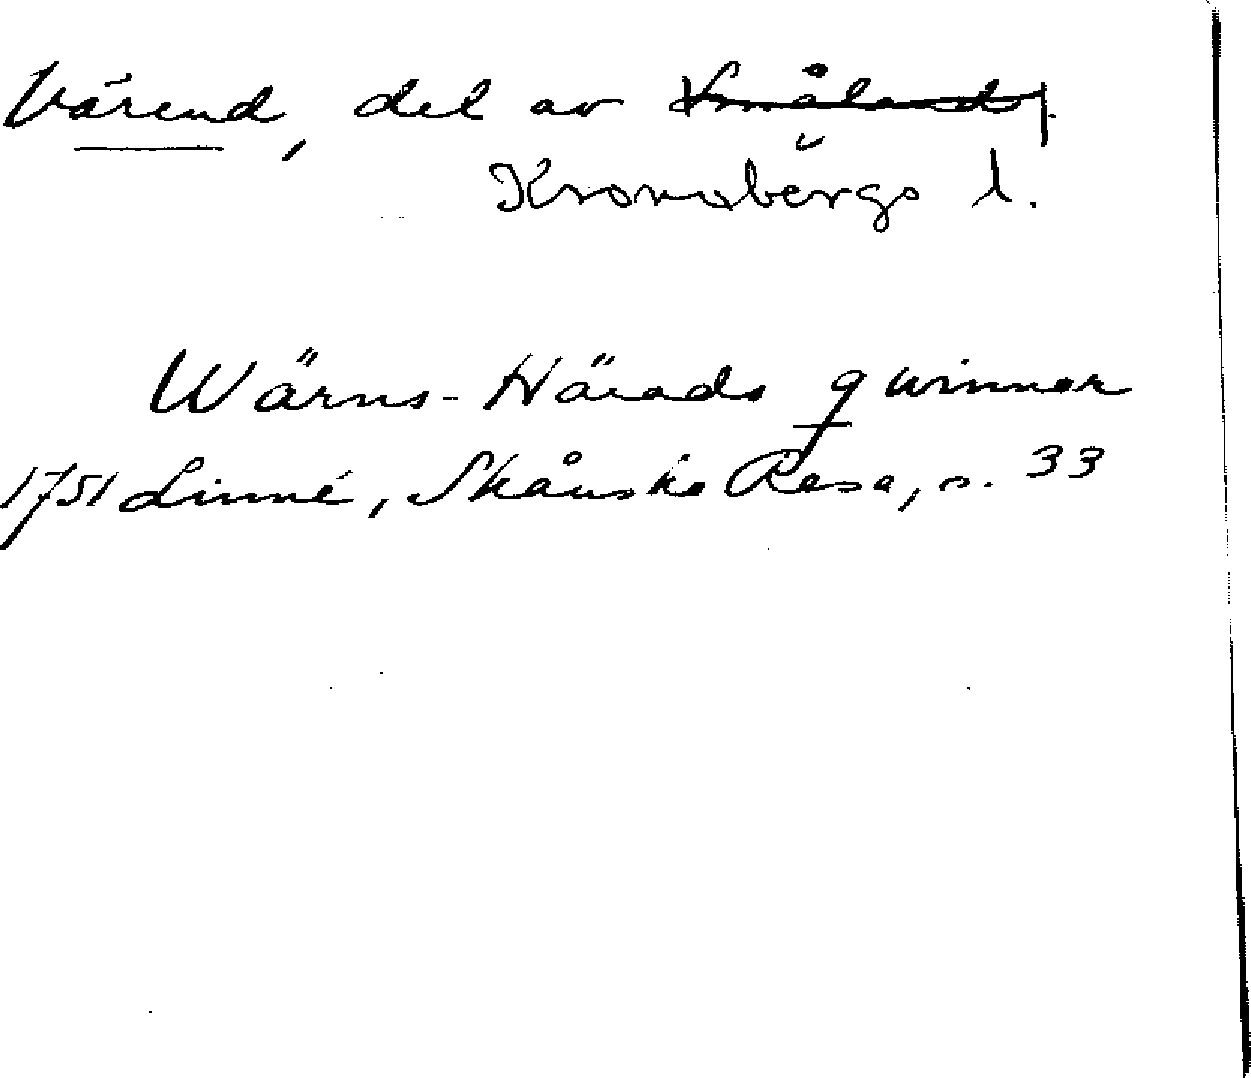 Värend, del av Småland
Kronobergs l.
Wärns-Härads qwinnor
1751 Linné, Skånska Resa, s. 33